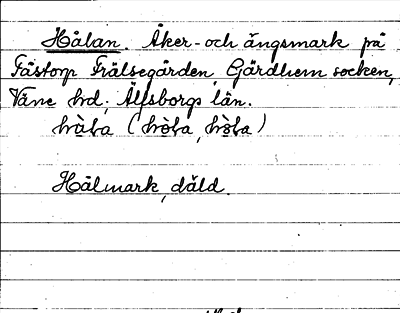 Hålan. Åker- och ängsmark på
Tåstorp Frälsegården, Gärdhem socken,
Väne hd, Älfsborgs län.
Hålmark, dåld.